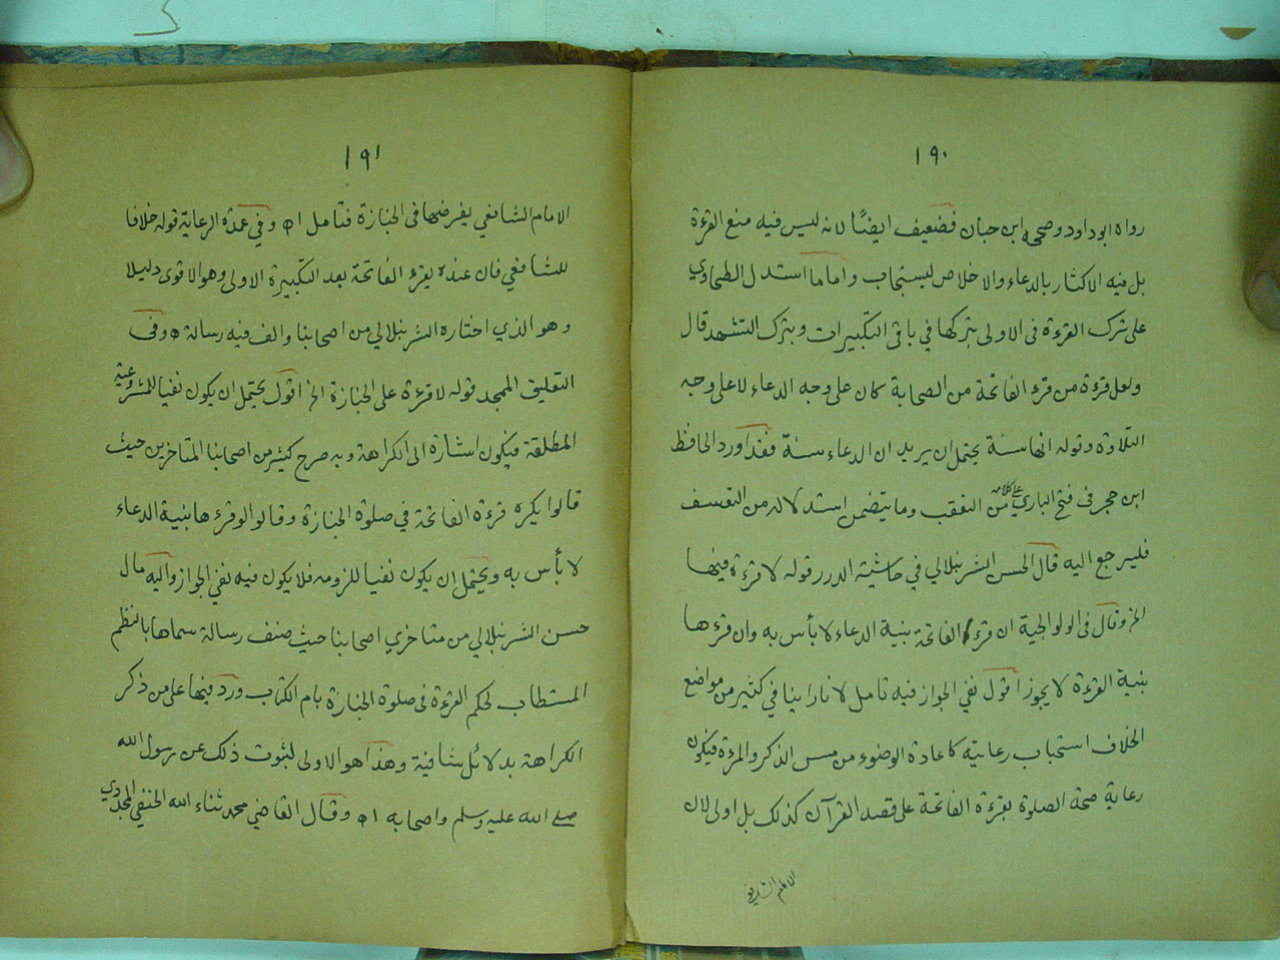 ١٩٠
رواه ابوداود وصححه ابن حبان فضعيف ايضًا لانه ليس فيه منع القرءة
بل فيه الاكثار بالدعاء والاخلاص ليستجاب واما ما استدل الطحاوي
على ترك القرءة فى الاولى بتركها في باقى التكبيرات وبترك التشهد قال
ولعل قرءة من قرء الفاتحة من الصحابة كان على وجه الدعاء لا على وجه
التلاوة وقوله انها سنة يحتمل ان يريد ان الدعاء سنة فقد اورد الحافظ
ابن حجر فى فتح الباري على كلامه من التعقب وما يتضمن استدلاله من التعسف
فليرجع اليه قال الحسن الشرنبلالي في حاشية الدرر قوله لا قرءة فيها
الخ وقال فى الولوالجية ان قرء الفاتحة بنية الدعاء لا بأس به وان قرءها
بنية القرءة لا يجوز اقول نفي الجواز فيه تامل لانا راينا في كثير من مواضع
الخلاف استحباب رعايته كاعادة الوضوء من مس الذكر والمرءة فيكون
رعاية صحة الصلوة بقرءة الفاتحة على قصد القرآن كذلك بل اولى لان
الامام الشافعي
١٩١
الامام الشافعي يفرضها فى الجنازة فتامل اه وفي عمدة الرعاية قوله خلافا
للشافعي فان عنده يقرء الفاتحة بعد التكبيرة الاولى وهو الاقوى دليلا
وهو الذي اختاره الشرنبلالي من اصحابنا والف فيه رسالة اه وفى
التعليق الممجد قوله لا قرءة على الجنازة الخ اقول يحتمل ان يكون نفيا للمشروعية
المطلقة فيكون اشارة الى الكراهة وبه صرح كثير من اصحابنا المتاخرين حيث
قالوا يكره قرءة الفاتحة في صلوة الجنازة وقالوا لو قرءها بنية الدعاء
لا بأس به ويحتمل ان يكون نفيا للزومه فلا يكون فيه نفي الجواز واليه مال
حسن الشرنبلالي من متاخري اصحابنا حيث صنف رسالة سماها بالنظم
المستطاب لحكم القرءة فى صلوة الجنازة بام الكتاب ورد فيها على من ذكر
الكراهة بدلائل شافية وهذا هو الاولى لثبوت ذلك عن رسول الله
صلى الله عليه وسلم واصحابه اه وقال القاضي محمد ثناء الله الحنفي المجددي